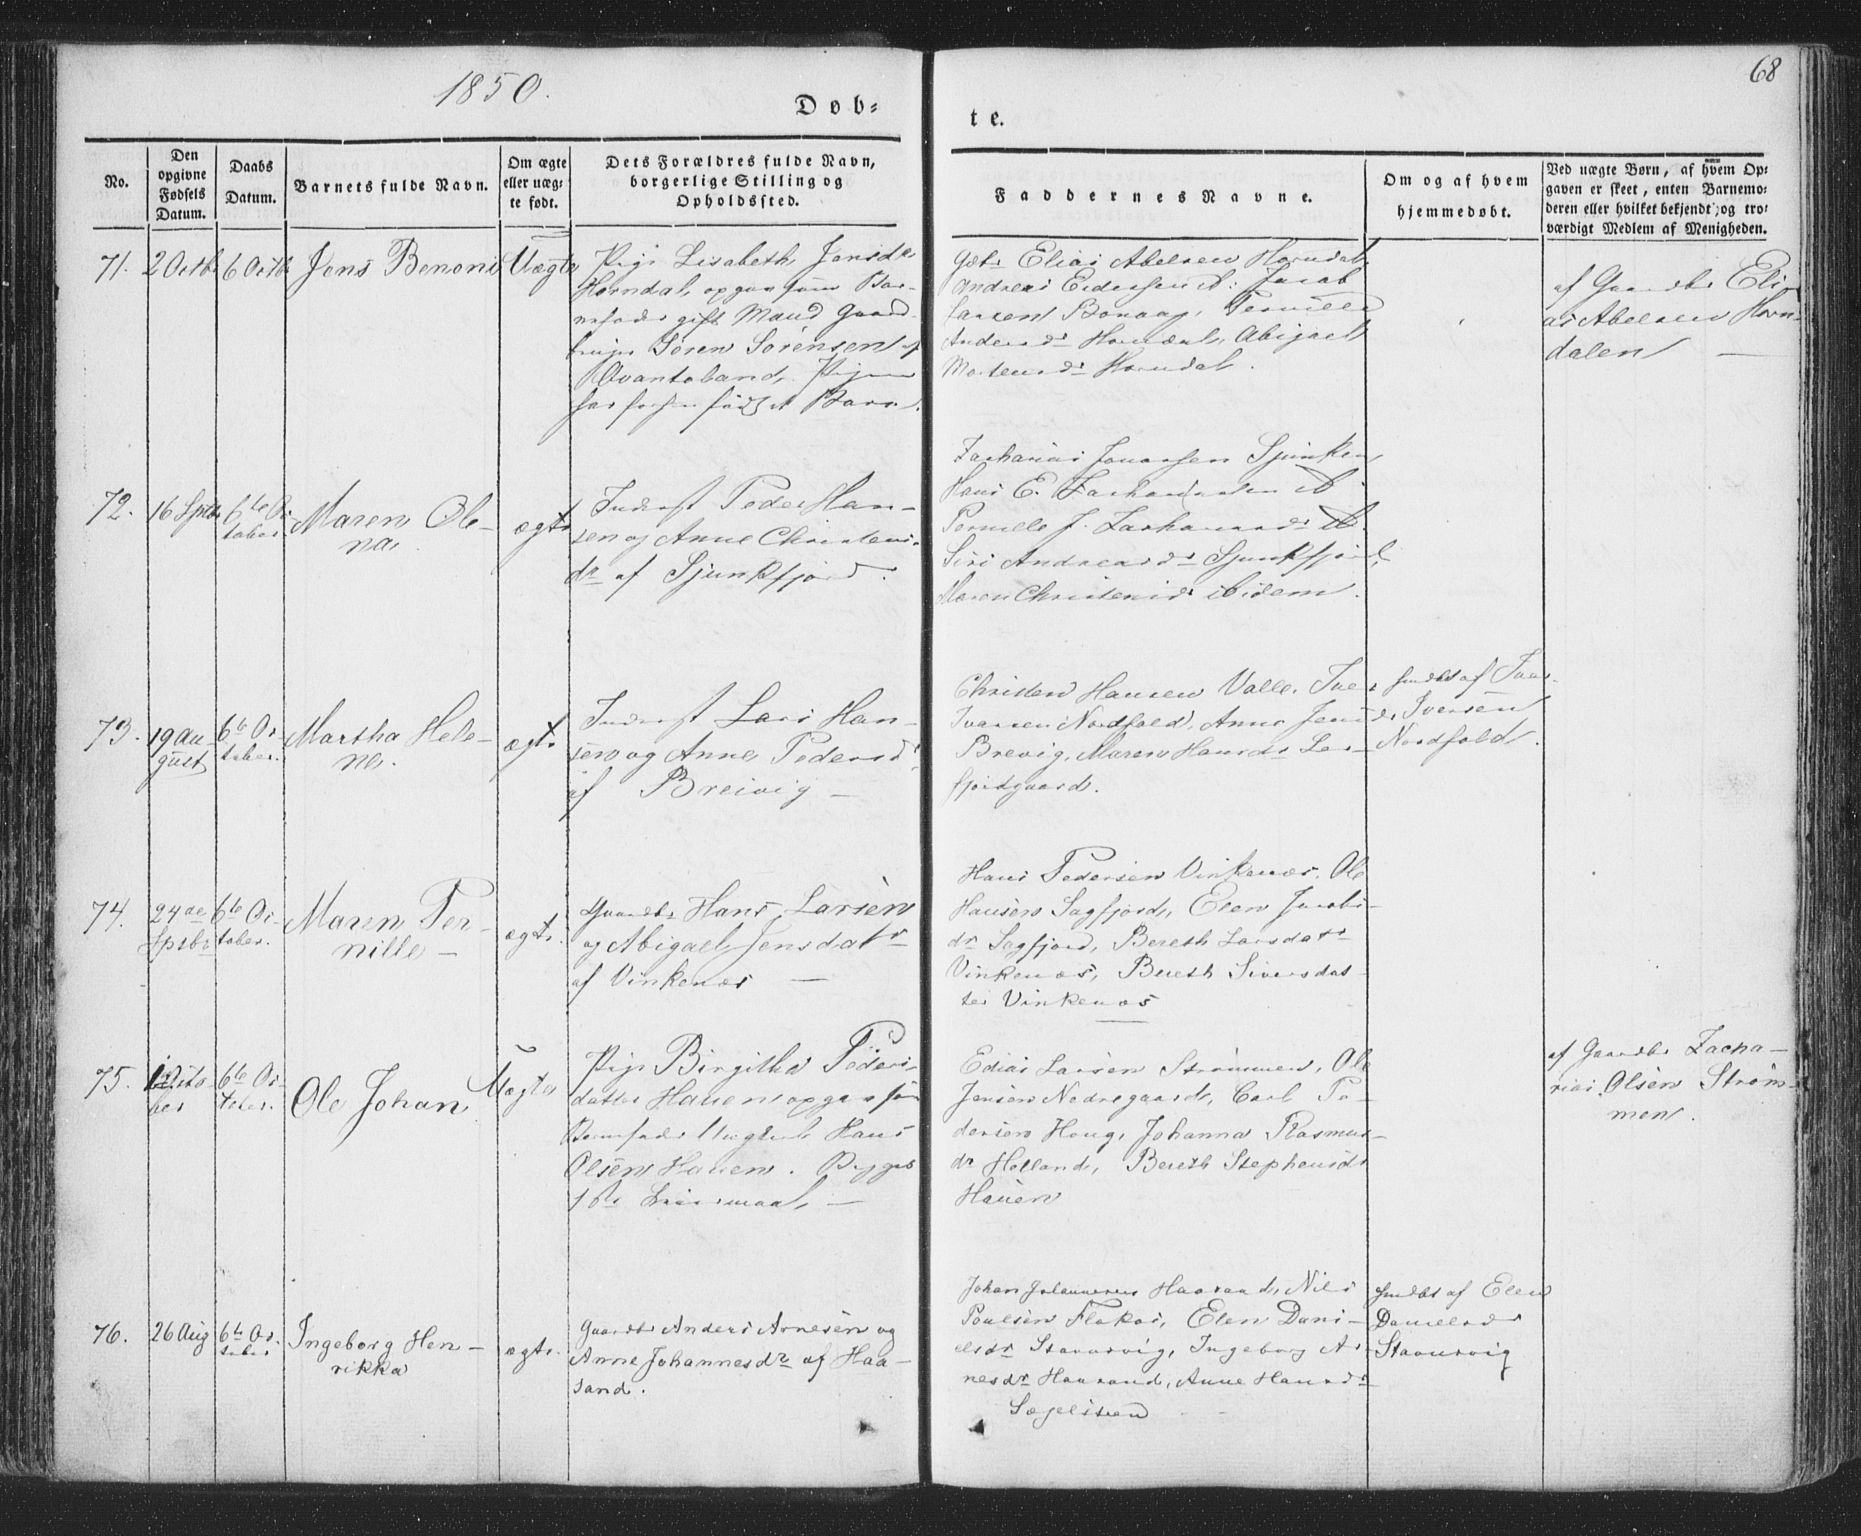 1850.
68
Døb-
te.
No.
Den opgivne Fødsels Datum.
Daabs Datum.
Barnets fulde Navn.
Om ægte eller uægte født.
Dets Forældres fulde Navn, borgerlige Stilling og Opholdssted.
Faddernes Navne.
Om og af hvem hjemmedøbt.
Ved uægte Børn, af hvem Opgaven er skeet, enten Barnemoderen eller hvilket bekjendt, og troværdigt Medlem af Menigheden.
71. 2 Octb 6 Octb Jens Benoni Uægte
Pige Lisabeth Jensdr
Horndal, opgav som Bar-
nefader gift Mand Gaard-
bruger Sören Sörensen af
Qvantoland. Pigen
har før født et Barn.
Gbr Elias Abelsen Horndal
Andreas Edersen ib: Jacob
Larsen Bonaap, Pernille
Andersdr Horndal, Abigael
Mortensdr Horndal.
af Gaardbr Eli-
as Abelsen Horn-
dalen –
72. 16 Septbr 6te Oc-
tober
Maren Ole-
na.
ægte
Inderst Peder Han-
sen og Anne Christens
dr af Sjunkfjord.
Zacharias Jonassen Sjunken
Hans E. Zachariassen ib
Pernille J. Zachariasdr ib.
Siri Andreasdr Sjunkfjord,
Maren Christensdr ibidem.
73. 19 Au-
gust
6te Oc-
tober.
Martha Hele-
na.
ægte
Inderst Lars Han-
sen og Anne Pedersd.
af Breivig –
Christen Hansen Valle, Iver
Ivarsen Nordfold, Anne Jensdr
Brevig, Maren Hansdr Ler-
fjordgaard.
hmdbt af Ivar
Iversen
Nordfold.
74. 24de
Sptbr
6te Oc-
tober.
Maren Per-
nille –
ægte.
Gaardbr Hans Larsen
og Abigael Jensdatr
af Vinkenæs –
Hans Pedersen Vinkenæs, Ole
Hansen Sagfjord, Elen Jacobs-
dr Sagfjord, Bereth Larsdatr
Vinkenæs, Bereth Siversdat-
ter Vinkenæs
75. 1 Octo-
ber
6te Oc-
tober.
Ole Johan
Uægte
Pige Birgitha Peders-
datter Hauen opgav som
Barnefader Ungkarl Hans
Olsen Hauen. Begges
1ste Leiermaal. –
Edias Larsen Strømmen, Ole
Jensen Nedregaard, Carl Pe-
dersen Houg, Johanna Rasmus-
dr Helland, Bereth Stephensdr
Hauen
af Gaardbr Zacha-
rias Olsen Strøm-
men.
76. 26 Aug 6te Oc-
tober
Ingeborg Hen-
rikka
ægte.
Gaardbr Anders Arnesen og
Anne Johannesdr af Haa-
sand.
Johan Johannesen Haasand, Nils
Poulsen Flakas, Elen Dani-
elsdr Stavarvig, Ingeborg Ar-
nesdr Haasand, Anne Hansdr
Sægelsteen
hmdbt af Elen
Danielsdr
Stavarvig